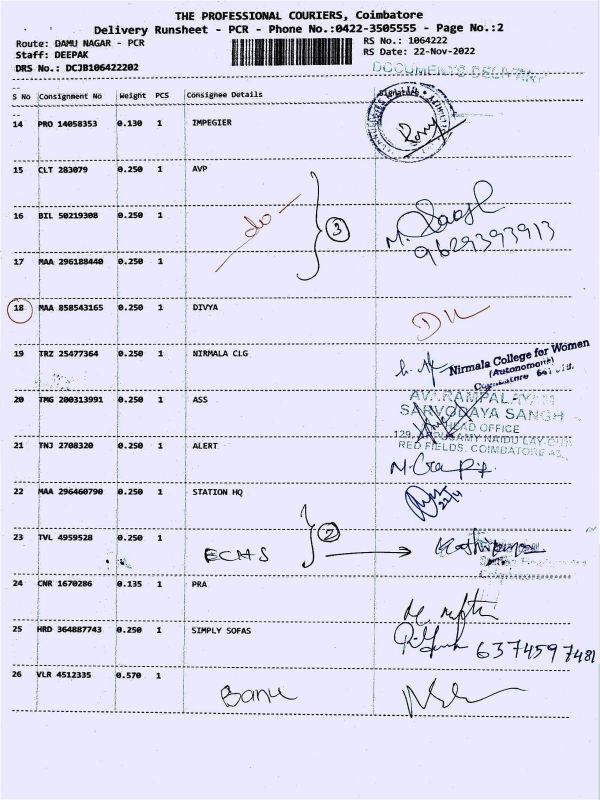 THE PROFESSIONAL COURIERS, Coimbatore
Delivery Runsheet - PCR - Phone No.:0422-3505555 - Page No.:2
Route: DAMU NAGAR - PCR
Staff: DEEPAK
DRS No.: DCJB106422202
RS No.: 1064222
RS Date: 22-Nov-2022
DOCUMENTS DELIVERY
S No Consignment No Weight PCS Consignee Details Signature
14 PRO 14058353 0.130 1 IMPEGIER
15 CLT 283079 0.250 1 AVP
16 BIL 50219308 0.250 1
do 3
9629393913
17 MAA 296188440 0.250 1
18 MAA 858543165 0.250 1 DIVYA
19 TRZ 25477364 0.250 1 NIRMALA CLG
Nirmala College for Women
(Autonomous)
Coimbatore
20 TMG 200313991 0.250 1 ASS
SARVODAYA SANGH
HEAD OFFICE
129, APPUSAMY NAIDU LAY-OUT
RED FIELDS, COIMBATORE
21 TNJ 2708320 0.250 1 ALERT
22 MAA 296460790 0.250 1 STATION HQ
22/11
23 TVL 4959528 0.250 1
ECHS 2
24 CNR 1670286 0.135 1 PRA
25 HRD 364887743 0.250 1 SIMPLY SOFAS
6374597481
26 VLR 4512335 0.570 1
Banu